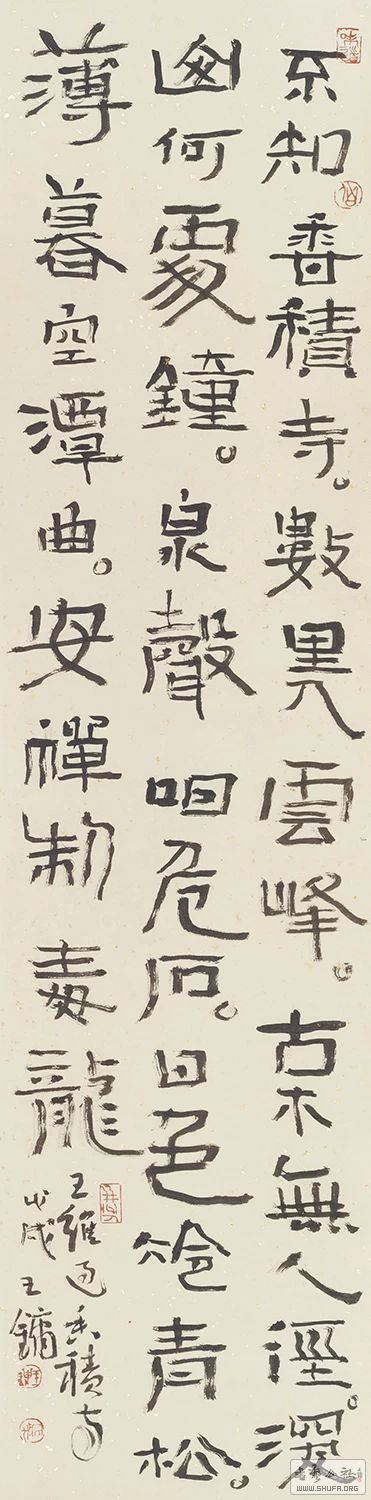 不知香積寺。數里入雲峰。古木無人徑。深
山何處鐘。泉聲咽危石。日色冷青松。
薄暮空潭曲。安禪制毒龍
王維過香積寺
戊戌王鏞
WWW.SHUFA.ORG